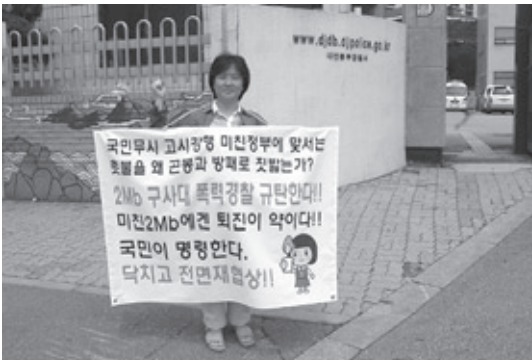 www.djdb.djpolice.go.kr
대전동부경찰서
국민무시 고시강행 미친정부에 맞서는
촛불을 왜 곤봉과 방패로 짓밟는가?
2Mb 구사대 폭력경찰 규탄한다!!
미친2Mb에겐 퇴진이 약이다!!
국민이 명령한다.
닥치고 전면재협상!!